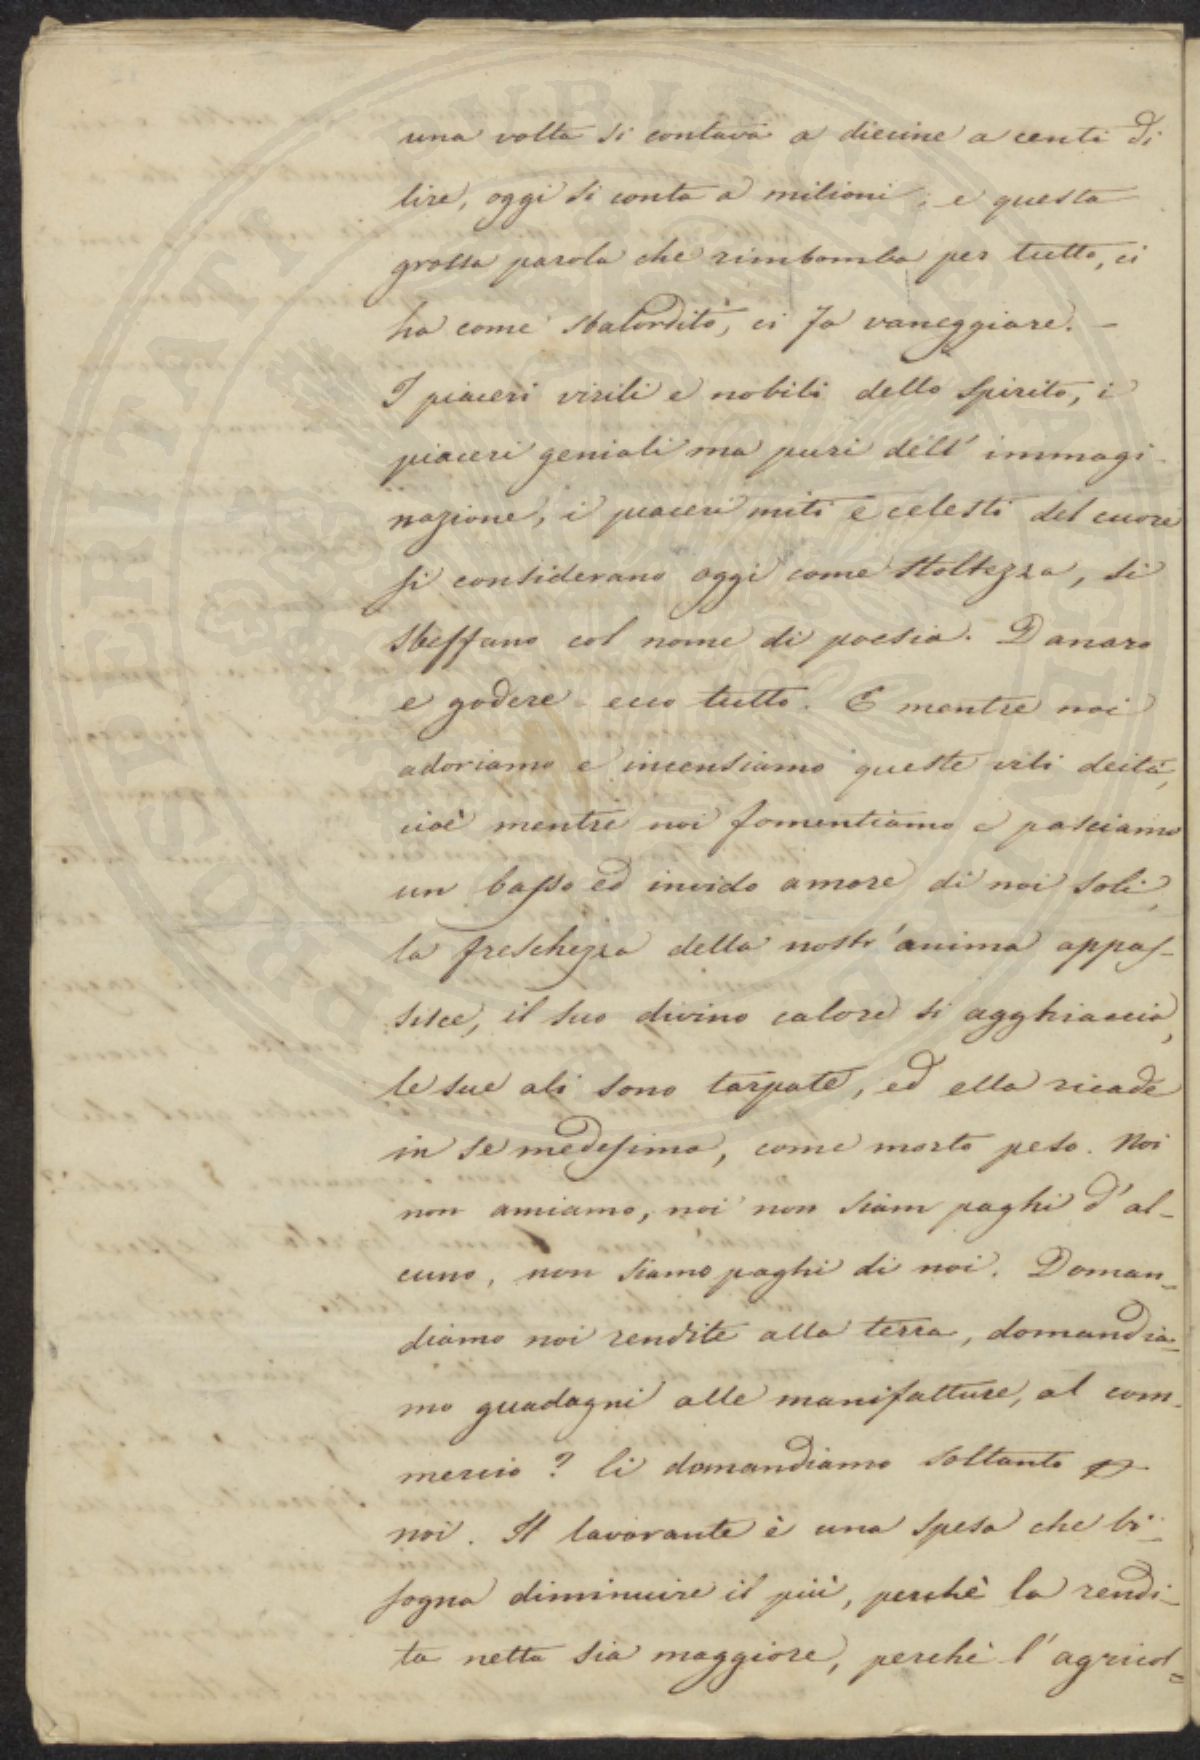 una volta si contava a diecine a centi di
lire, oggi si conta a milioni; e questa
grossa parola che rimbomba per tutto, ci
ha come sbalordito, ci fa vaneggiare. –
I piaceri virili e nobili dello spirito, i
piaceri geniali ma puri dell' immagi-
nazione, i piaceri miti e celesti del cuore
si considerano oggi come stoltezza, si
sbeffano col nome di poesia. Danaro
e godere ecco tutto. E mentre noi
adoriamo e incensiamo queste vili deità,
cioè mentre noi fomentiamo e pasciamo
un basso ed invido amore di noi soli,
la freschezza della nostr'anima appas-
sisce, il suo divino calore si agghiaccia,
le sue ali sono tarpate, ed ella ricade
in se medesima, come morto peso. Noi
non amiamo, noi non siam paghi d'al-
cuno, non siamo paghi di noi. Doman-
diamo noi rendite alla terra, domandia-
mo guadagni alle manifatture, al com-
mercio? li domandiamo soltanto
noi. Il lavorante è una spesa che bi-
sogna diminuire il più, perchè la rendi-
ta netta sia maggiore, perchè l'agricol=
PROSPERITATI PUBLICAE